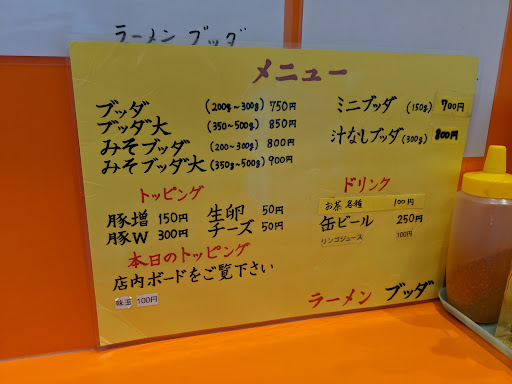 ラーメン ブッダ
メニュー
ブッダ (200g~300g) 750円
ブッダ大 (350~500g) 850円
みそブッダ (200~300g) 800円
みそブッダ大 (350g~500g) 900円
ミニブッダ (150g) 700円
汁なしブッダ (300g) 800円
トッピング
豚増 150円 生卵 50円
豚W 300円 チーズ 50円
本日のトッピング
店内ボードをご覧下さい
味玉 100円
ドリンク
お茶 各種 100円
缶ビール 250円
リンゴジュース 100円
ラーメン ブッダ